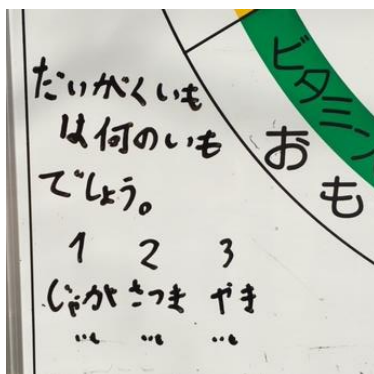 だいがくいも
は何のいも
でしょう。
1 2 3
じゃが さつま やき
〃 〃 〃
ビタミン
おも